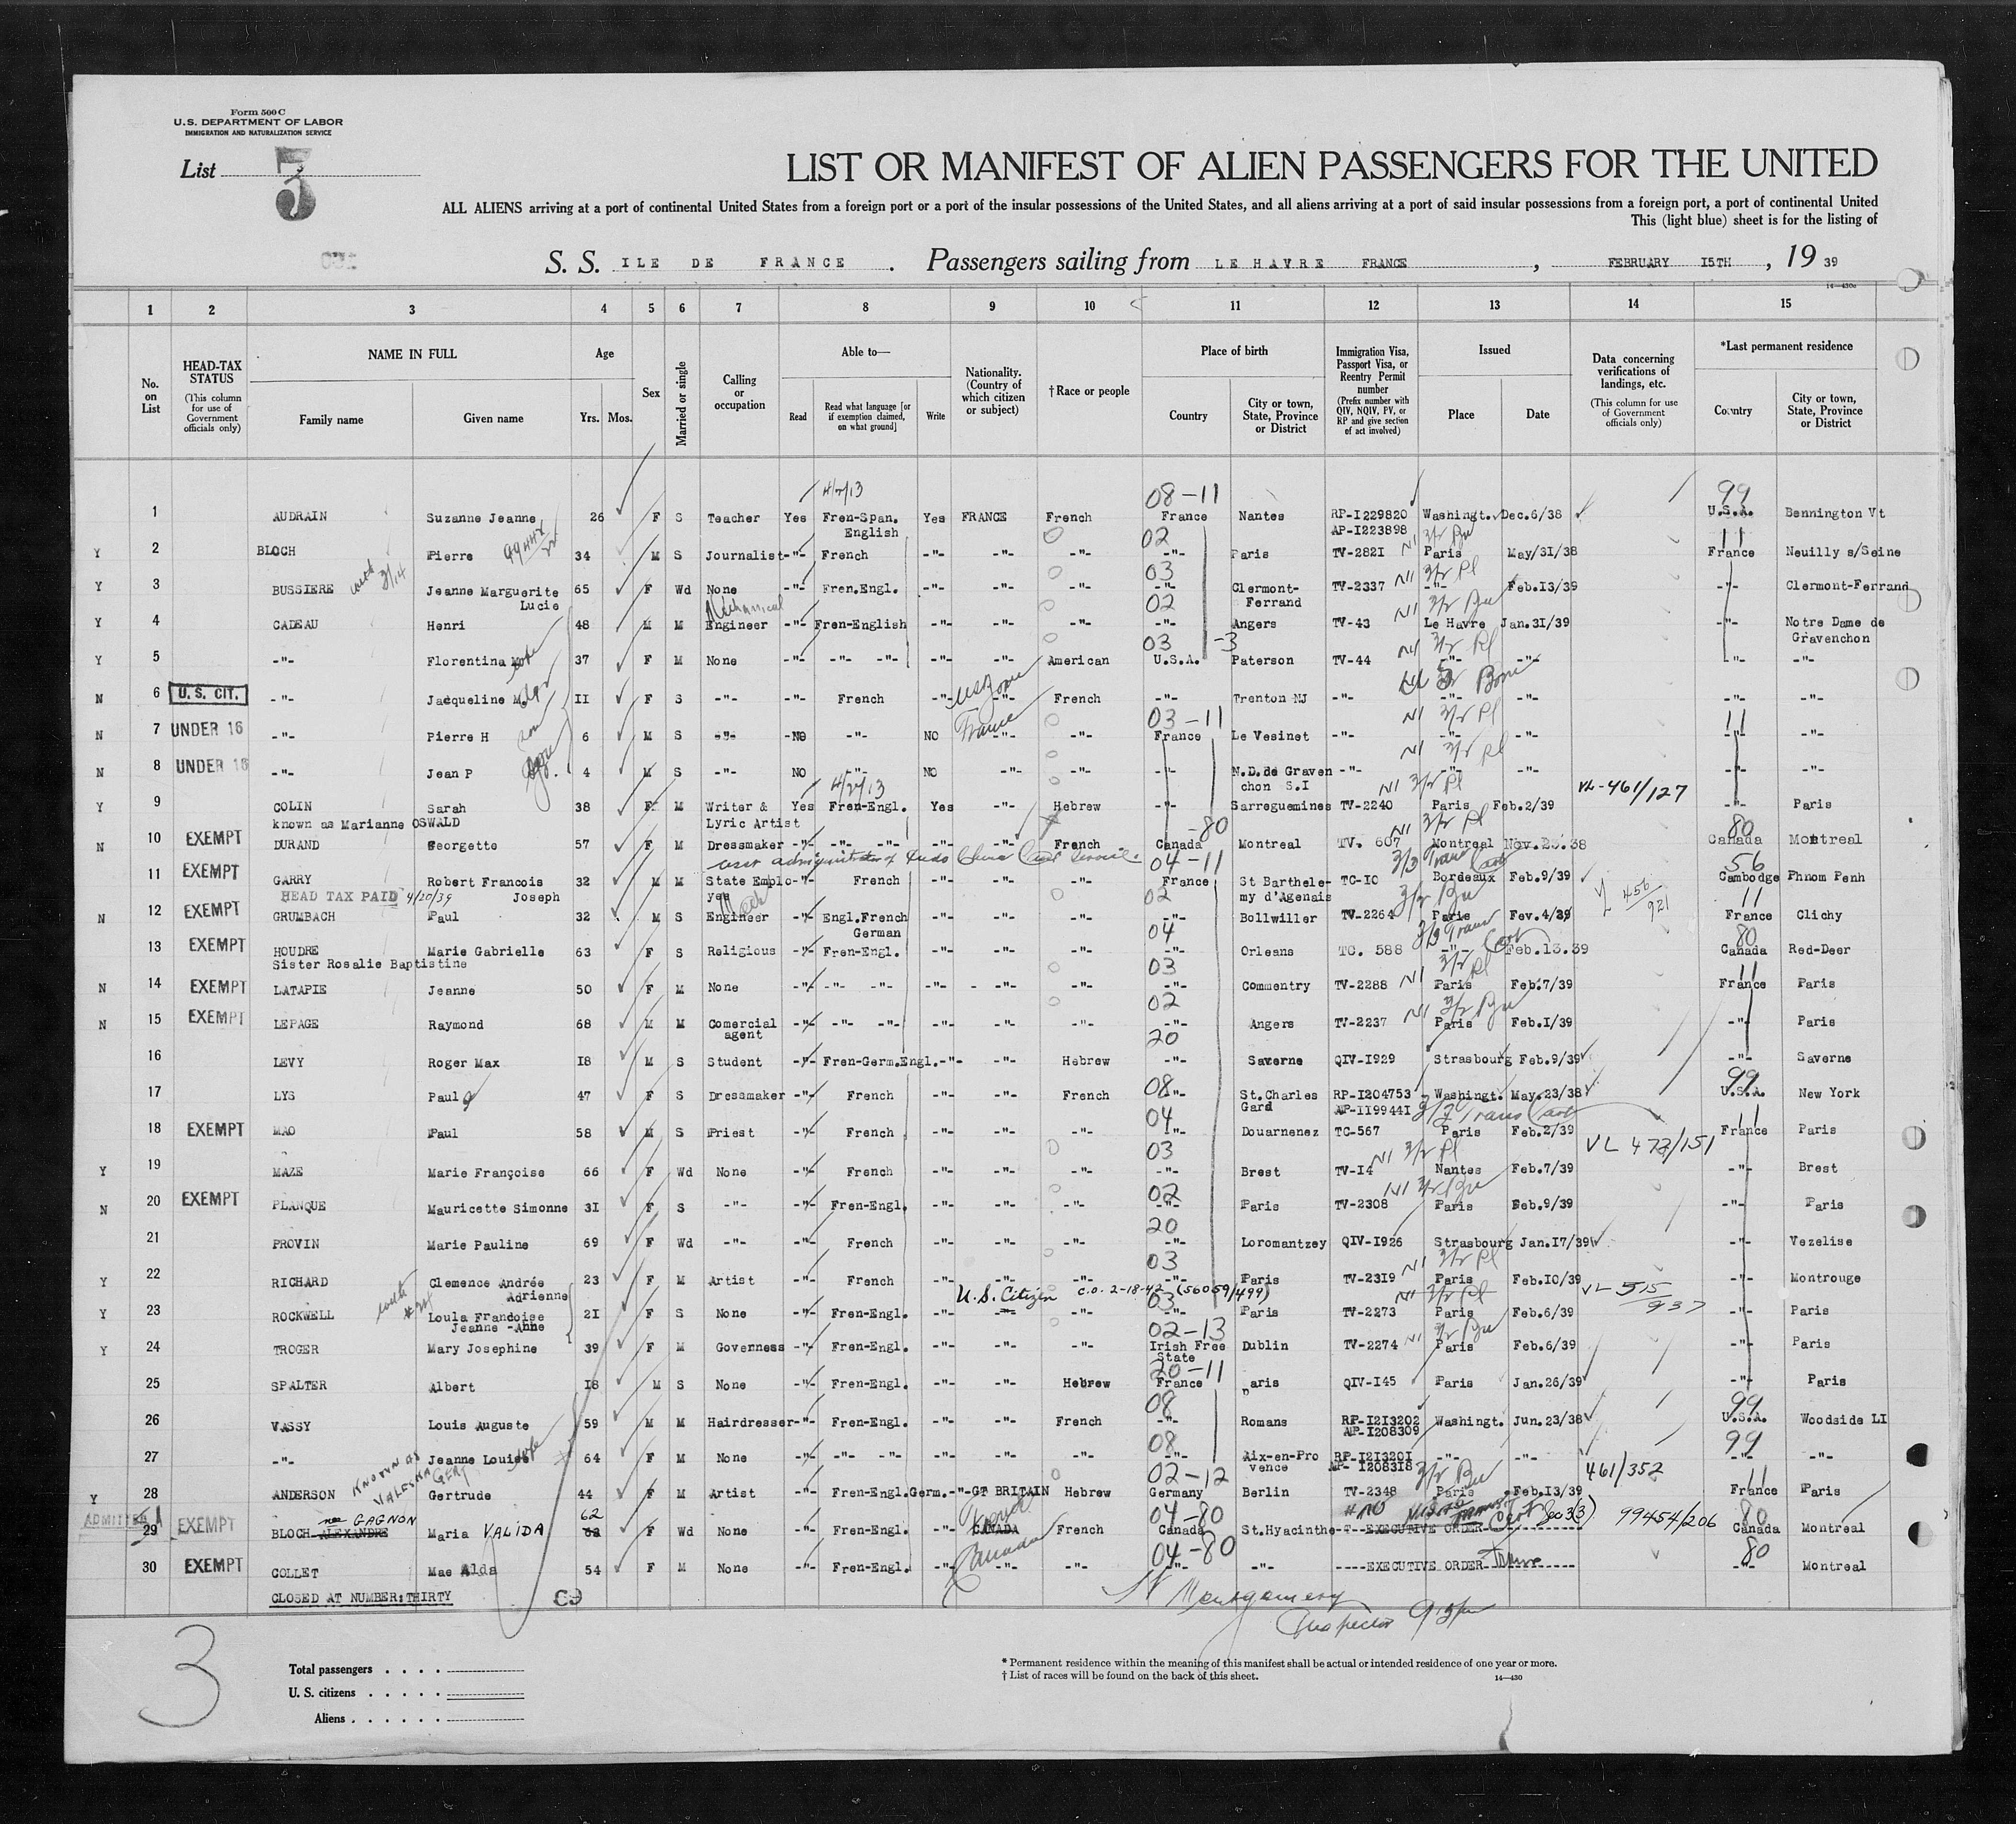 Form 500 C
U.S. DEPARTMENT OF LABOR
IMMIGRATION AND NATURALIZATION SERVICE
List 3
LIST OR MANIFEST OF ALIEN PASSENGERS FOR THE UNITED
ALL ALIENS arriving at a port of continental United States from a foreign port or a port of the insular possessions of the United States, and all aliens arriving at a port of said insular possessions from a foreign port, a port of continental United
This (light blue) sheet is for the listing of
S. S. ILE DE FRANCE . Passengers sailing from LE HAVRE FRANCE , FEBRUARY 15TH , 19 39
14—430c
1 2 3 4 5 6 7 8 9 10 11 12 13 14 15
No. on List
HEAD-TAX STATUS (This column for use of Government officials only)
NAME IN FULL Family name Given name
Age Yrs. Mos.
Sex
Married or single
Calling or occupation
Able to— Read Read what language [or if exemption claimed, on what ground] Write
Nationality. (Country of which citizen or subject)
†Race or people
Place of birth Country City or town, State, Province or District
Immigration Visa, Passport Visa, or Reentry Permit number (Prefix number with QIV, NQIV, PV, or RP and give section of act involved)
Issued Place Date
Data concerning verifications of landings, etc. (This column for use of Government officials only)
*Last permanent residence Country City or town, State, Province or District
4/2/13 08-11 99
1 AUDRAIN Suzanne Jeanne 26 F S Teacher Yes Fren-Span. English Yes FRANCE French France Nantes RP-I229820 AP-I223898 Washingt. Dec.6/38 U.S.A. Bennington Vt
02 11
Y 2 BLOCH Pierre 34 M S Journalist -"- French -"- -"- -"- -"- Paris TV-2821 Paris May/31/38 France Neuilly s/Seine
03
Y 3 BUSSIERE Jeanne Marguerite Lucie 65 F Wd None -"- Fren.Engl. -"- -"- -"- -"- Clermont-Ferrand TV-2337 -"- Feb.13/39 -"- Clermont-Ferrand
02
Y 4 CADEAU Henri 48 M M Mechanical Engineer -"- Fren-English -"- -"- -"- -"- Angers TV-43 Le Havre Jan.31/39 -"- Notre Dame de Gravenchon
03 -3
Y 5 -"- Florentina 37 F M None -"- -"- -"- -"- -"- American U.S.A. Paterson TV-44 -"- -"- -"- -"-
N 6 U.S. CIT. -"- Jacqueline M. 11 F S -"- -"- French -"- -"- French -"- Trenton NJ -"- -"- -"- -"- -"-
03-11 11
N 7 UNDER 16 -"- Pierre H 6 M S -"- NO -"- NO France -"- -"- France Le Vesinet -"- -"- -"- -"- -"-
N 8 UNDER 16 -"- Jean P 4 M S -"- NO -"- NO -"- -"- -"- N.D.de Gravenchon S.I -"- -"- -"- -"- -"-
4/2/13 VL-461/127
Y 9 COLIN Sarah 38 F M Writer & Lyric Artist Yes Fren-Engl. Yes -"- Hebrew -"- Sarreguemines TV-2240 Paris Feb.2/39 -"- Paris
known as Marianne OSWALD
-80 80
N 10 EXEMPT DURAND Georgette 57 F M Dressmaker -"- -"- -"- -"- -"- French Canada Montreal TV. 607 Montreal Nov.23.38 Canada Montreal
04-11 56
11 EXEMPT GARRY Robert Francois Joseph 32 M M State Employee -"- French -"- -"- -"- France St Barthelemy d'Agenais TC-10 Bordeaux Feb.9/39 456/921 Cambodge Phnom Penh
HEAD TAX PAID 4/20/39
02 11
N 12 EXEMPT GRUMBACH Paul 32 M S Engineer -"- Engl.French German -"- -"- -"- -"- Bollwiller TV-2264 Paris Fev.4/39 France Clichy
04 80
13 EXEMPT HOUDRE Marie Gabrielle 63 F S Religious -"- Fren-Engl. -"- -"- -"- -"- Orleans TC. 588 -"- Feb.13.39 Canada Red-Deer
Sister Rosalie Baptistine
03 11
N 14 EXEMPT LATAPIE Jeanne 50 F M None -"- -"- -"- -"- -"- -"- -"- Commentry TV-2288 Paris Feb.7/39 France Paris
02
N 15 EXEMPT LEPAGE Raymond 68 M M Comercial agent -"- -"- -"- -"- -"- -"- -"- Angers TV-2237 Paris Feb.1/39 -"- Paris
20
16 LEVY Roger Max 18 M S Student -"- Fren-Germ.Engl. -"- -"- Hebrew -"- Saverne QIV-I929 Strasbourg Feb.9/39 -"- Saverne
08 99
17 LYS Paula 47 F S Dressmaker -"- French -"- -"- French -"- St.Charles Gard RP-I204753 AP-1199441 Washingt. May.23/38 U.S.A. New York
04 11
18 EXEMPT MAO Paul 58 M S Priest -"- French -"- -"- -"- -"- Douarnenez TC-567 Paris Feb.2/39 France Paris
03 VL 473/151
Y 19 MAZE Marie Françoise 66 F Wd None -"- French -"- -"- -"- -"- Brest TV-I4 Nantes Feb.7/39 -"- Brest
02
N 20 EXEMPT PLANQUE Mauricette Simonne 31 F S -"- -"- Fren-Engl. -"- -"- -"- -"- Paris TV-2308 Paris Feb.9/39 -"- Paris
20
21 PROVIN Marie Pauline 69 F Wd -"- -"- French -"- -"- -"- -"- Loromantzey QIV-I926 Strasbourg Jan.17/39 -"- Vezelise
03
Y 22 RICHARD Clemence Andrée Adrienne 23 F M Artist -"- French -"- -"- -"- -"- Paris TV-2319 Paris Feb.10/39 -"- Montrouge
U.S. Citizen C.O. 2-18-42 (56059/499) 03 VL 515/937
Y 23 ROCKWELL Loula Francoise Jeanne-Anne 21 F S None -"- Fren-Engl. -"- -"- -"- -"- Paris TV-2273 Paris Feb.6/39 -"- Paris
02-13
Y 24 TROGER Mary Josephine 39 F M Governess -"- Fren-Engl. -"- -"- -"- Irish Free State Dublin TV-2274 Paris Feb.6/39 -"- Paris
20-11
25 SPALTER Albert 18 M S None -"- Fren-Engl. -"- -"- Hebrew France Paris QIV-I45 Paris Jan.26/39 -"- Paris
08 99
26 VASSY Louis Auguste 59 M M Hairdresser -"- Fren-Engl. -"- -"- French -"- Romans RP-I213202 AP-I208309 Washingt. Jun.23/38 U.S.A. Woodside LI
08 99
27 -"- Jeanne Louise 64 F M None -"- -"- -"- -"- -"- -"- -"- Aix-en-Provence RP-I213201 AP-I208318 -"- -"- -"- -"-
KNOWN AS VALESKA GERT 02-12 461/352 11
Y 28 ANDERSON Gertrude 44 F M Artist -"- Fren-Engl.Germ. -"- GT BRITAIN Hebrew Germany Berlin TV-2348 Paris Feb.13/39 France Paris
nee GAGNON 62 04-80 80
ADMITTED 29 EXEMPT BLOCH-ALEXANDRE Maria VALIDA F Wd None -"- Fren-Engl. -"- French CANADA French Canada St.Hyacinthe EXECUTIVE ORDER 99454/206 Canada Montreal
04-80 80
30 EXEMPT COLLET Mae Alda 54 F M None -"- Fren-Engl. -"- Canada -"- -"- -"- -"- EXECUTIVE ORDER -"- Montreal
CLOSED AT NUMBER:THIRTY
Montgomery
Inspector
3
Total passengers . . . .
U. S. citizens . . . . .
Aliens . . . . . .
* Permanent residence within the meaning of this manifest shall be actual or intended residence of one year or more.
† List of races will be found on the back of this sheet.
14—430